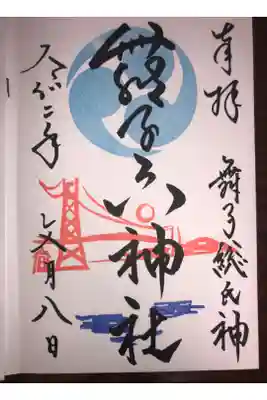 奉拝 舞子総氏神
舞子六神社
令和二年 月八日